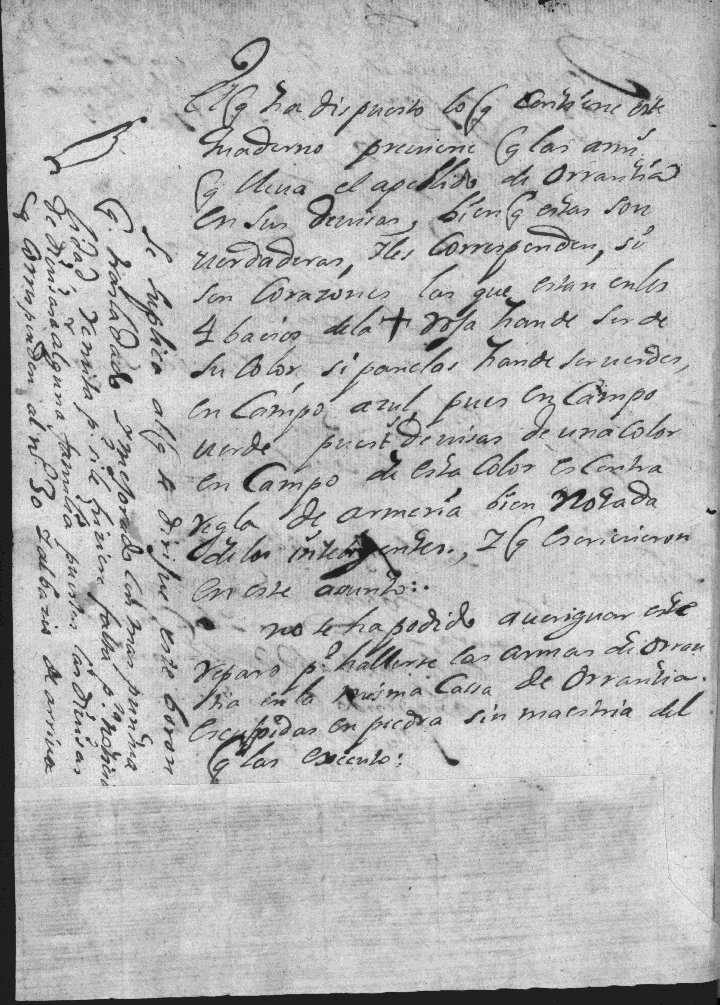 El q ha dispuesto lo q Contiene este
Quaderno previene q las armˢ
q lleva el apellido de Orrantia
en sus devisas, bien q estas son
verdaderas, y les Corresponden, si
son Corazones las que estan en los
4 bacios de la + roja han de ser de
su Color, si panelas han de ser verdes,
en Campo azul, pues en Campo
verde puestˢ devisas de una Color
en Campo de esta Color es Contra
regla de armeria bien Notada
de los inteligentes, y q escrivieron
en este asunto:
no se ha podido averiguar este
reparo pʳ hallarse las armas de Orran
tia en la misma Cassa de Orrantia
esculpidas en piedra sin maestria del
q las executo:
Se suplica al q se dirijie este borron
q. trasladado y mejorado con mas puntua
lidad remita p. si le hiziere falta p.ʳ notici
de divisas alguna familia puestas las divisas
q corresponden al nº. 30 y al bacio de arriva